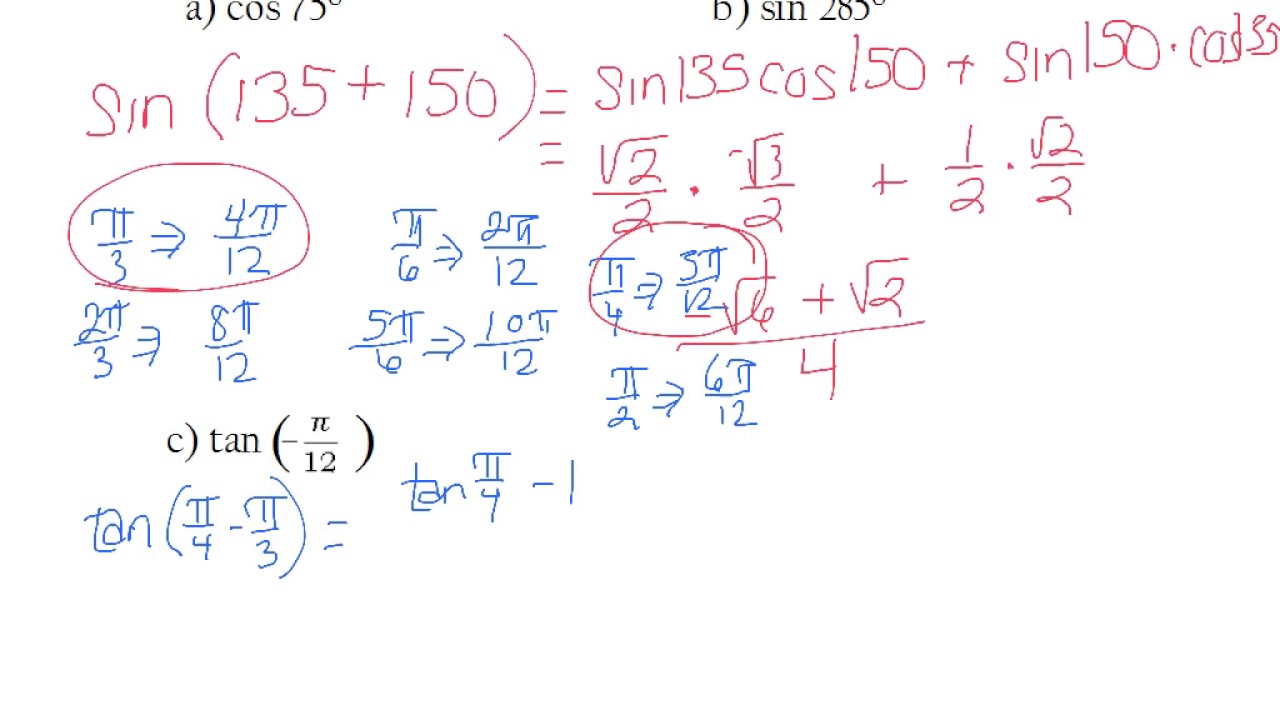 a) cos 75° b) sin 285°
sin (135 + 150) = sin135 cos150 + sin150 · cos135
= √2/2 · -√3/2 + 1/2 · √2/2
π/3 ⇒ 4π/12 π/6 ⇒ 2π/12 π/4 ⇒ 3π/12 √6 + √2 / 4
2π/3 ⇒ 8π/12 5π/6 ⇒ 10π/12 π/2 ⇒ 6π/12
c) tan (-π/12)
tan (π/4 - π/3) = tan π/4 - 1